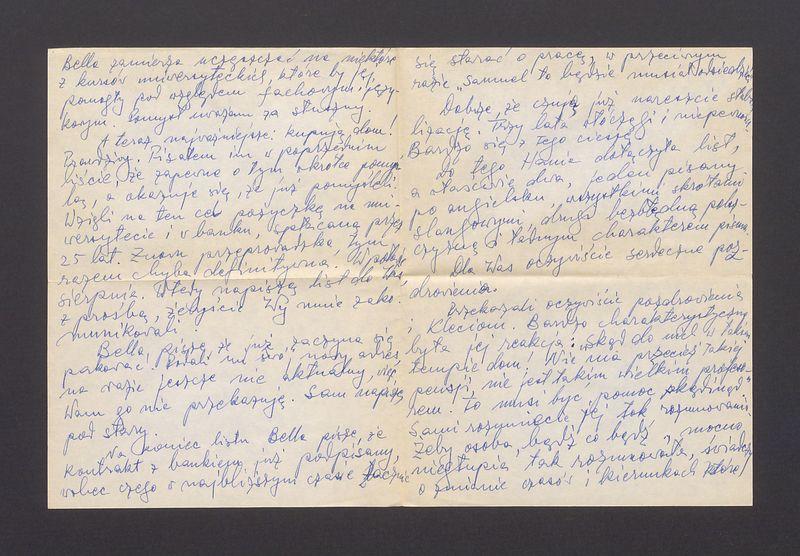 Bella zamierza uczęszczać na niektóre
z kursów uniwersyteckich, które by jej
pomogły pod względem fachowym i języ-
kowym. Pomysł uważam za słuszny.
A teraz najważniejsze: kupują dom!
Prawdziwy. Pisałem im w poprzednim
liście, że zapewne o tym wkrótce pomyś-
lą, a okazuje się, że już pomyśleli.
Wzięli na ten cel pożyczkę na uni-
wersytecie i w banku, spłacaną przez
25 lat. Znów przeprowadzka, tym
razem chyba definitywna. W połowie
sierpnia. Wtedy napiszą list do Was
z prośbą, żebyście Wy mnie zako-
munikowali.
Bella pisze, że już zaczyna się
pakować. Podali mi swój nowy adres,
na razie jeszcze nie aktualny, więc
Wam go nie przekazuję. Sam napiszę
pod stary.
Na koniec listu Bella pisze, że
kontrakt z bankiem już podpisany,
wobec czego w najbliższym czasie zacznie
się starać o pracę, w przeciwnym
razie „Samuel to będzie musiał odsiedzieć”
Dobrze, że czują już nareszcie stabi-
lizację. Trzy lata włóczęgi i niepewności.
Bardzo się z tego cieszę.
Do tego Hania dołączyła list,
a właściwie dwa, jeden pisany
po angielsku, wszystkimi skrótami
slangowymi, drugi bezbłędną polsz-
czyzną i ładnym charakterem pisma.
Dla Was oczywiście serdeczne poz-
drowienia.
Przekazali oczywiście pozdrowienia
i Kleciom. Bardzo charakterystyczna
była jej reakcja: skąd do mel w takim
tempie dom! Nie ma przecież takiej
pensji, nie jest takim wielkim profeso-
rem. To musi być pomoc „skądinąd”.
Sami rozumiecie jej tok rozumowania.
Żeby osoba, bądź co bądź, mocno
niegłupia tak rozumowała, świadczy
o zmianie czasów i kierunkach